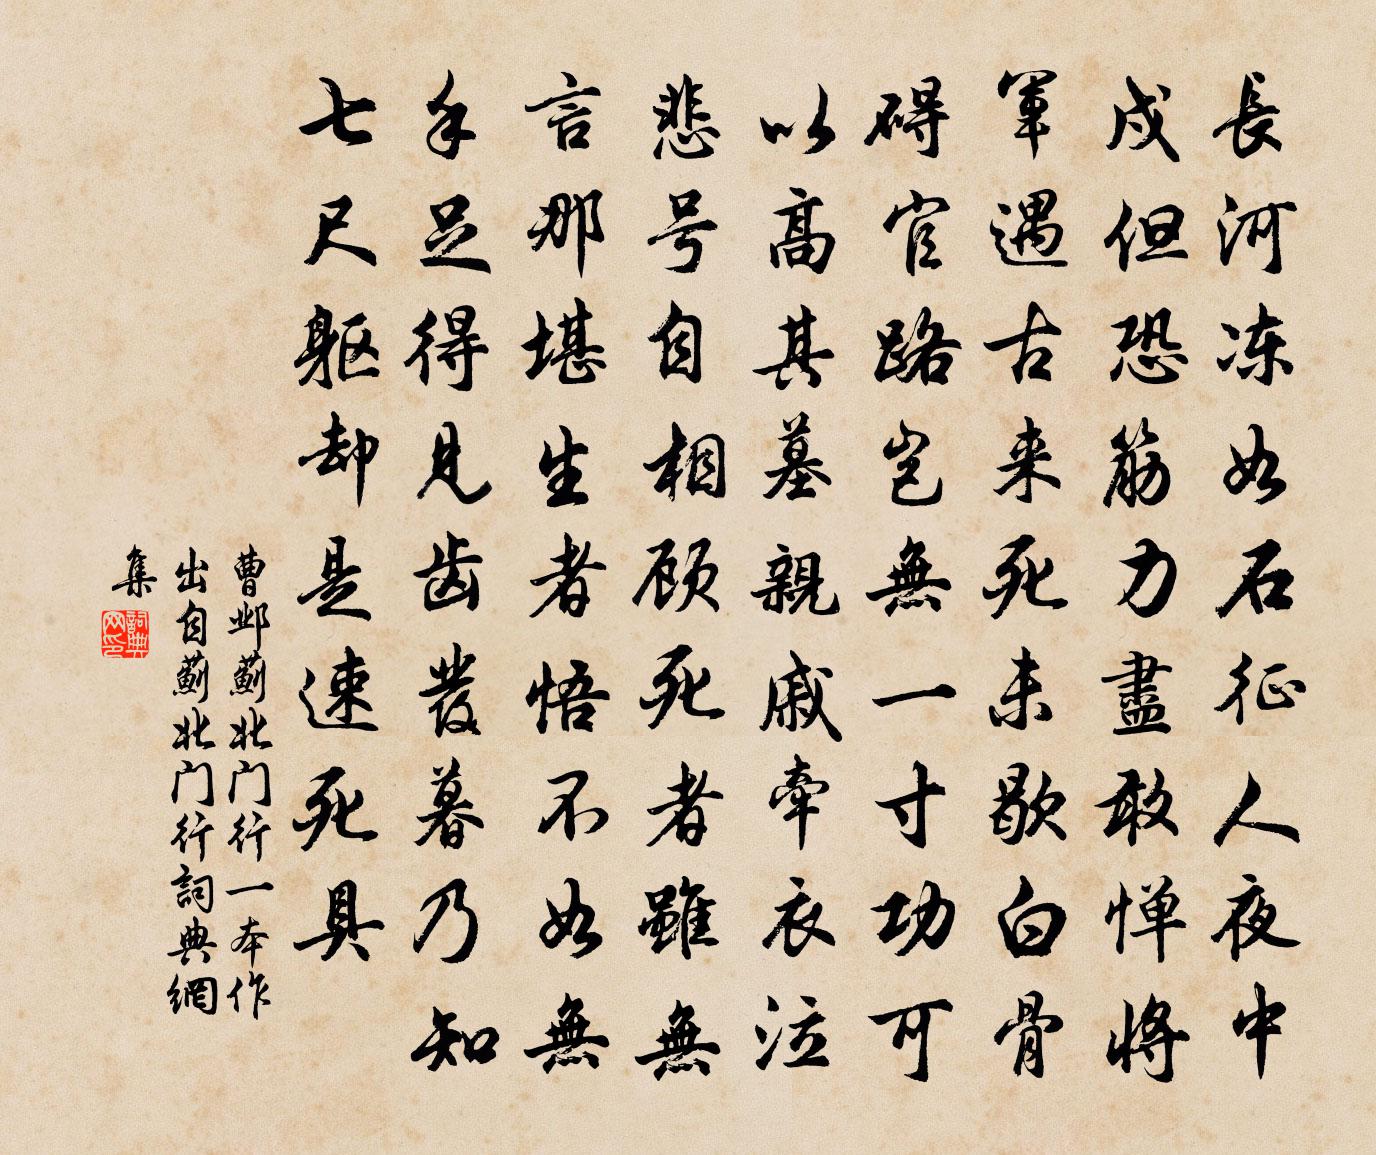 長河冻如石征人夜中
戍但恐筋力盡敢惮將
軍遇古来死未歇白骨
碍官路岂無一寸功可
以高其墓親戚牽衣泣
悲号自相顾死者雖無
言那堪生者悟不如無
手足得見齿發暮乃知
七尺躯却是速死具
曹邺蓟北门行一本作
出自蓟北门行詞典網
集
詞典网印